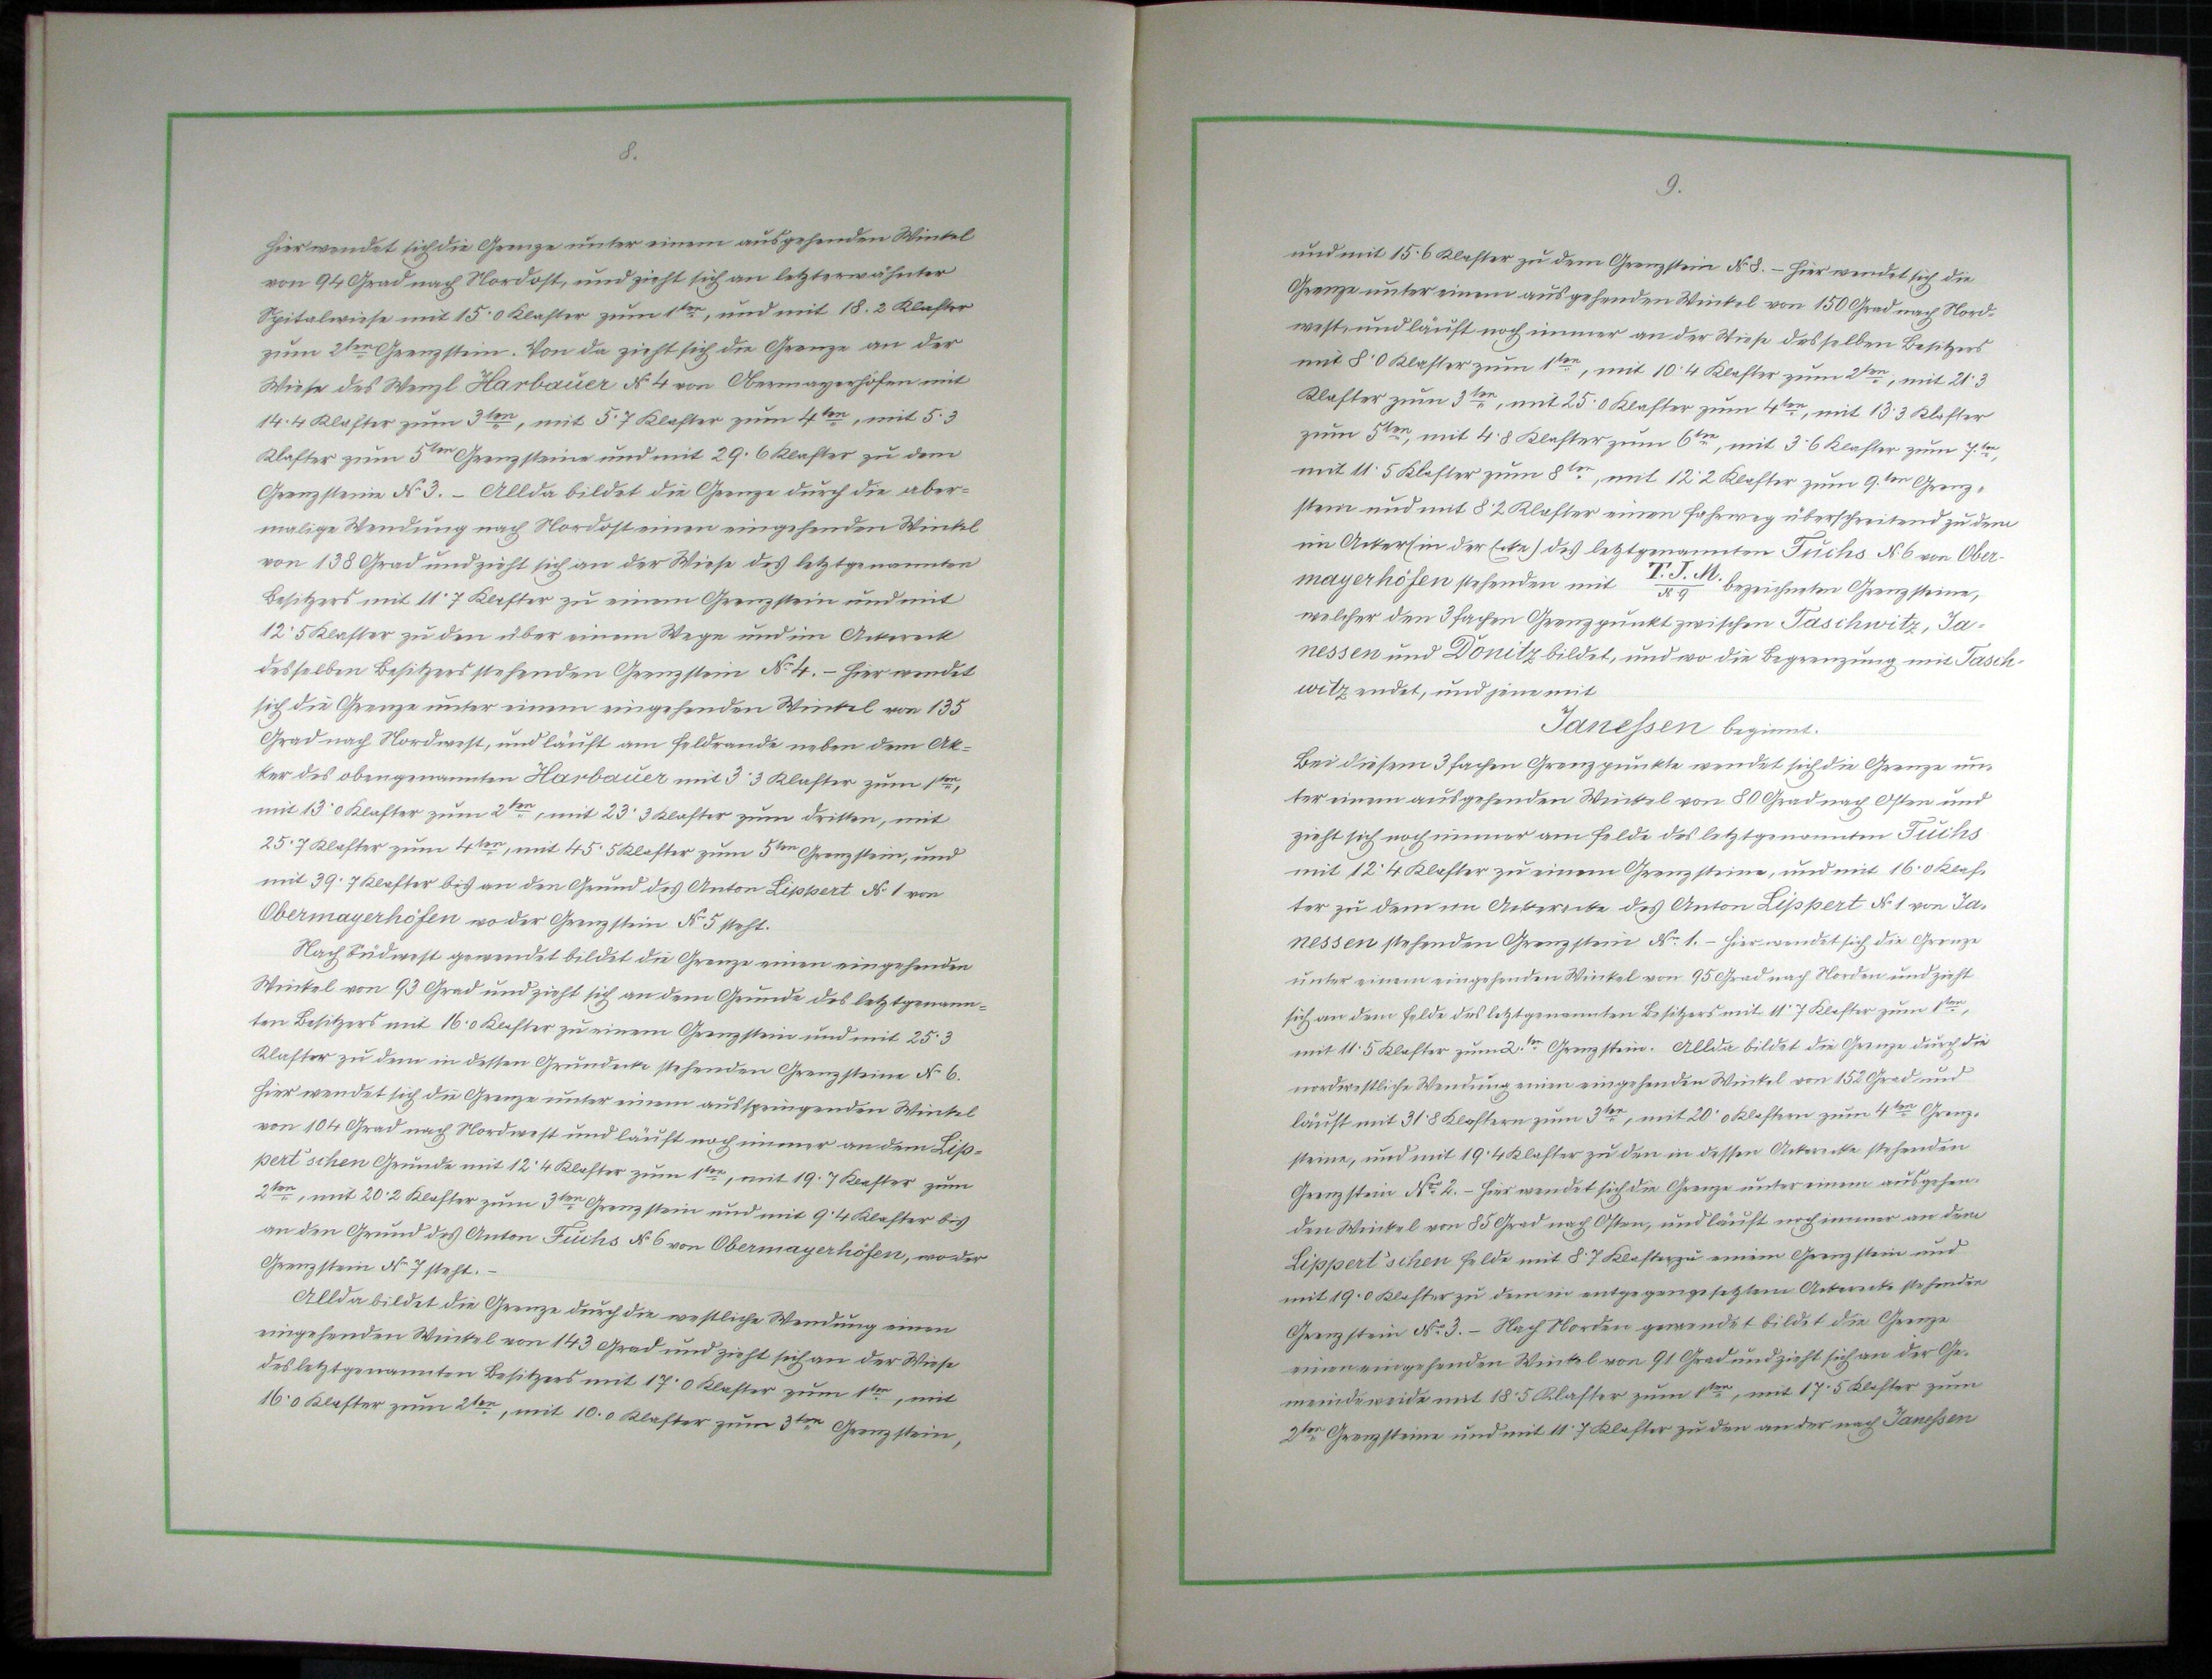 8.
Hier wendet sich die Grenze unter einem ausgehenden Winkel
von 94 Grad nach Nordost, und zieht sich an letzterwähnter
Spitalwiese mit 15·0 Klafter zum 1ten, und mit 18·2 Klafter
zum 2ten Grenzstein. Von da zieht sich die Grenze an der
Wiese des Wenzl Harbauer № 4 von Obermayerhöfen mit
14·4 Klafter zum 3ten, mit 5·7 Klafter zum 4ten, mit 5·3
Klafter zum 5ten Grenzsteine und mit 29·6 Klafter zu dem
Grenzsteine № 3. – Allda bildet die Grenze durch die aber=
malige Wendung nach Nordost einen eingehenden Winkel
von 138 Grad und zieht sich an der Wiese des letztgenannten
Besitzers mit 11·7 Klafter zu einem Grenzstein und mit
12·5 Klafter zu den über einem Wege und im Ackereck
desselben Besitzers stehenden Grenzstein № 4. – Hier wendet
sich die Grenze unter einem eingehenden Winkel von 135
Grad nach Nordwest, und läuft am Feldrande neben dem Ak=
ker des obengenannten Harbauer mit 3·3 Klafter zum 1ten,
mit 13·0 Klafter zum 2ten, mit 23·3 Klafter zum dritten, mit
25·7 Klafter zum 4ten, mit 45·5 Klafter zum 5ten Grenzstein, und
mit 39·7 Klafter bis an den Grund des Anton Lippert № 1 von
Obermayerhöfen wo der Grenzstein № 5 steht.
Nach Südwest gewendet bildet die Grenze einen eingehenden
Winkel von 93 Grad und zieht sich an dem Grunde des letztgenann=
ten Besitzers mit 16·0 Klafter zu einem Grenzstein und mit 25·3
Klafter zu dem in dessen Grundecke stehenden Grenzsteine № 6.
Hier wendet sich die Grenze unter einem ausspringenden Winkel
von 104 Grad nach Nordwest und läuft noch immer an dem Lip=
pert'schen Grunde mit 12·4 Klafter zum 1ten, mit 19·7 Klafter zum
2ten, mit 20·2 Klafter zum 3ten Grenzstein und mit 9·4 Klafter bis
an den Grund des Anton Fuchs № 6 von Obermayerhöfen, wo der
Grenzstein № 7 steht. –
Allda bildet die Grenze durch die westliche Wendung einen
eingehenden Winkel von 143 Grad und zieht sich an der Wiese
des letztgenannten Besitzers mit 17·0 Klafter zum 1ten, mit
16·0 Klafter zum 2ten, mit 10·0 Klafter zum 3ten Grenzstein,
9.
und mit 15·6 Klafter zu dem Grenzstein № 8. – Hier wendet sich die
Grenze unter einem ausgehenden Winkel von 150 Grad nach Nord=
west, und läuft noch immer an der Wiese desselben Besitzers
mit 8·0 Klafter zum 1ten, mit 10·4 Klafter zum 2ten, mit 21·3
Klafter zum 3ten, mit 25·0 Klafter zum 4ten, mit 13·3 Klafter
zum 5ten, mit 4·8 Klafter zum 6ten, mit 3·6 Klafter zum 7.ten,
mit 11·5 Klafter zum 8ten, mit 12·2 Klafter zum 9.ten Grenz=
stein und mit 8·2 Klafter einen Fahrweg überschreitend zu dem
im Acker (in der Ecke) des letztgenannten Fuchs № 6 von Ober-
mayerhöfen stehenden mit T. J. M. / № 9 bezeichneten Grenzsteine,
welcher den 3fachen Grenzpunkt zwischen Taschwitz, Ja=
nessen und Donitz bildet, und wo die Begrenzung mit Tasch-
witz endet, und jene mit
Janeſsen beginnt.
Bei diesem 3fachen Grenzpunkte wendet sich die Grenze un=
ter einem ausgehenden Winkel von 80 Grad nach Osten und
zieht sich noch immer am Felde des letztgenannten Fuchs
mit 12·4 Klafter zu einem Grenzsteine, und mit 16·0 Klaf=
ter zu dem im Ackerecke des Anton Lippert № 1 von Ja=
nessen stehenden Grenzstein № 1. – Hier wendet sich die Grenze
unter einem eingehenden Winkel von 95 Grad nach Norden und zieht
sich an dem Felde des letztgenannten Besitzers mit 11·7 Klafter zum 1ten,
mit 11·5 Klafter zum 2.ten Grenzstein. Allda bildet die Grenze durch die
nordwestliche Wendung einen eingehenden Winkel von 152 Grad und
läuft mit 31·8 Klaftern zum 3ten, mit 20·0 Klaftern zum 4ten Grenz=
steine, und mit 19·4 Klafter zu den in dessen Ackerecke stehenden
Grenzstein № 2. – Hier wendet sich die Grenze unter einem ausgehen=
den Winkel von 85 Grad nach Osten, und läuft noch immer an dem
Lippert'schen Felde mit 8·7 Klafter zu einem Grenzstein und
mit 19·0 Klafter zu dem in entgegengesetztem Ackerecke stehenden
Grenzstein № 3. – Nach Norden gewendet bildet die Grenze
einen eingehenden Winkel von 91 Grad und zieht sich an der Ge=
meindeweide mit 18·5 Klafter zum 1ten, mit 17·5 Klafter zum
2ten Grenzsteine und mit 11·7 Klafter zu den an der nach Janeſsen